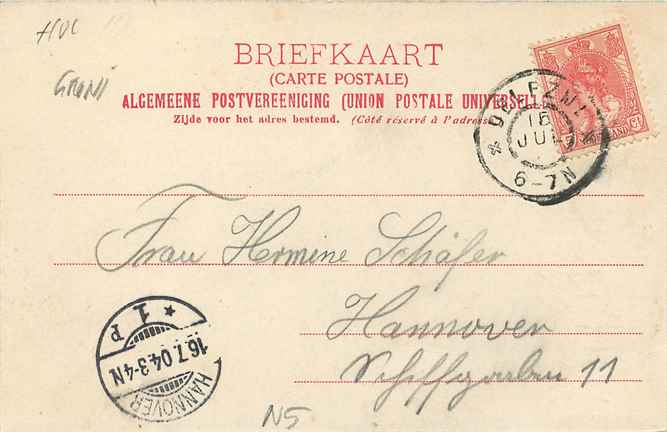 HOL
GRONI
BRIEFKAART
(CARTE POSTALE)
ALGEMEENE POSTVEREENIGING (UNION POSTALE UNIVERSELLE)
Zijde voor het adres bestemd. (Côté réservé à l'adresse)
DELFZIJL
15
JUL
6-7N
Frau Hermine Schäfer
Hannover
Schiffgraben 11
* 1 P
16.7.04.3-4N
HANNOVER
N5